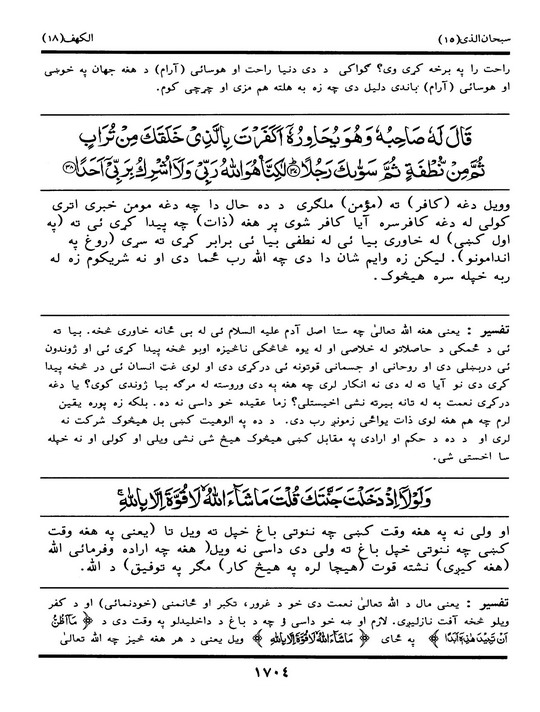 سبحان الذی(١٥)
الکهف(١٨)
راحت را په برخه کړی وی؟ ګواکي د دی دنیا راحت او هوسائي (آرام) د هغه جهان په خوښي
او هوسائي (آرام) باندی دلیل دی چه زه به هلته هم مزی او چرچی کوم.
قَالَ لَهٗ صَاحِبُهٗ وَهُوَ يُحَاوِرُهٗٓ اَكَفَرْتَ بِالَّذِيْ خَلَقَكَ مِنْ تُرَابٍ
ثُمَّ مِنْ نُّطْفَةٍ ثُمَّ سَوّٰىكَ رَجُلًا ﴿٣٧﴾ لٰكِنَّا۠ هُوَ اللّٰهُ رَبِّيْ وَلَآ اُشْرِكُ بِرَبِّيْٓ اَحَدًا ﴿٣٨﴾
وویل دغه (کافر) ته (مؤمن) ملګری د ده حال دا چه دغه مومن خبری اتری
کولی له دغه کافرسره آیا کافر شوی پر هغه (ذات) چه پیدا کړی ئی ته (په
اول کښی) له خاوری بیا ئی له نطفی بیا ئی برابر کړی ته سړی (روغ په
اندامونو). لیکن زه وایم شان دا دی چه الله رب ځما دی او نه شریکوم زه له
ربه خپله سره هیڅوک.
تفسیر : یعنی هغه الله تعالیٰ چه ستا اصل آدم علیه السلام ئی له بی ځانه خاوری څخه. بیا ته
ئی د ځمکی د حاصلاتو له خلاصی او له یوه څاڅکي ناڅیزه اوبو څخه پیدا کړی ئی او ژوندون
ئی دربښلی دی او روحانی او جسمانی قوتونه ئی درکړی دی او لوی غټ انسان ئی در څخه پیدا
کړی دی نو آیا ته له دی نه انکار لری چه هغه به دی وروسته له مرګه بیا ژوندی کوی؟ یا دغه
درکړی نعمت به له تانه بیرته نشی اخیستلی؟ زما عقیده خو داسی نه ده. بلکه زه پوره یقین
لرم چه هم هغه لوی ذات یواځی زمونږ رب دی. د ده په الوهیت کښی بل هیڅوک شرکت نه
لری او د ده د حکم او ارادی په مقابل کښی هیڅوک هیڅ شی نشی ویلی او کولی او نه خپله
سا اخستی شی.
وَلَوْلَآ اِذْ دَخَلْتَ جَنَّتَكَ قُلْتَ مَا شَآءَ اللّٰهُ لَا قُوَّةَ اِلَّا بِاللّٰهِ ۚ
او ولی نه په هغه وقت کښی چه ننوتی باغ خپل ته ویل تا (یعنی په هغه وقت
کښی چه ننوتی خپل باغ ته ولی دی داسی نه ویل( هغه چه اراده وفرمائی الله
(هغه کیږی) نشته قوت (هیچا لره په هیڅ کار) مګر په توفیق) د الله.
تفسیر : یعنی مال د الله تعالیٰ نعمت دی خو د غرور، تکبر او ځانمنی (خودنمائی) او د کفر
ویلو څخه آفت نازلیږی. لازم او ښه خو داسی ؤ چه د باغ د داخلیدلو په وقت دی د ﴿ مَآ اَظُنُّ
اَنْ تَبِيْدَ هٰذِهٖٓ اَبَدًا ﴾ په ځای ﴿ مَا شَآءَ اللّٰهُ لَا قُوَّةَ اِلَّا بِاللّٰهِ ﴾ ویل یعنی د هر هغه څیز چه الله تعالیٰ
١٧٠٤